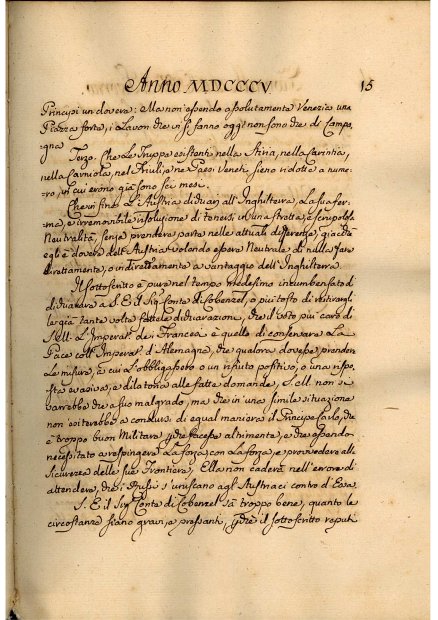 Anno MDCCCV. 15
Principi un dovere: Ma non essendo assolutamente Venezia una
Piazza forte, i Lavori che vi si fanno oggi non sono che di Campa,
gna
Terzo. Che le Truppe esistenti nella Stiria, nella Carintia,
nella Carniola, nel Friuli, e ne Paesi Veneti sieno ridotte a nume,
ro, in cui erono già sono sei mesi.
Che in fine L'Austria dichiari all'Inghilterra, La sua fer,
ma, e irremovibile risoluzione di tenersi in una stretta, e scrupolosa
Neutralità, senza prendere parte nelle attuali differenze, già che
egli è dovere dell'Austria volendo essere Neutrale di nulla fare
direttamente, o indirettamente a vantaggio dell'Inghilterra
Il sottoscritto è pure nel tempo medesimo incumbensato di
dichiarare a S. E. il Sig. Conte di Cobenzel, o più tosto di
le già tante volte fattele dichiarazioni, che il voto più caro di
S. M. L'Imperat. de i Francesi è quello di conservare La
Pace coll'Imperat. d'Alemagna, che qualora dovesse, prendere
Le misure, a cui L'obbligassero o un rifiuto positivo, o una rispo,
sta evasiva, e dilatoria alle fatte domande, S. M. non si
varrebbe che a suo malgrado, ma che in una simile situazione
non esiterebbe a condursi di equal maniera il Principe Carlo, che
è troppo buon Militare facesse altrimente, e che essendo
necessitato a respingere La forza con La forza, e provvedere alla
Sicurezza delle sue Frontiere, Ella non caderà nell'errore di
attendere, che i Russi s'uniscano agl'Austriaci contro d'Essa.
S. E. il Sig. Conte di Cobenzel sà troppo bene, quanto le
circostanze siano gravi, e pressanti, il sottoscritto reputi